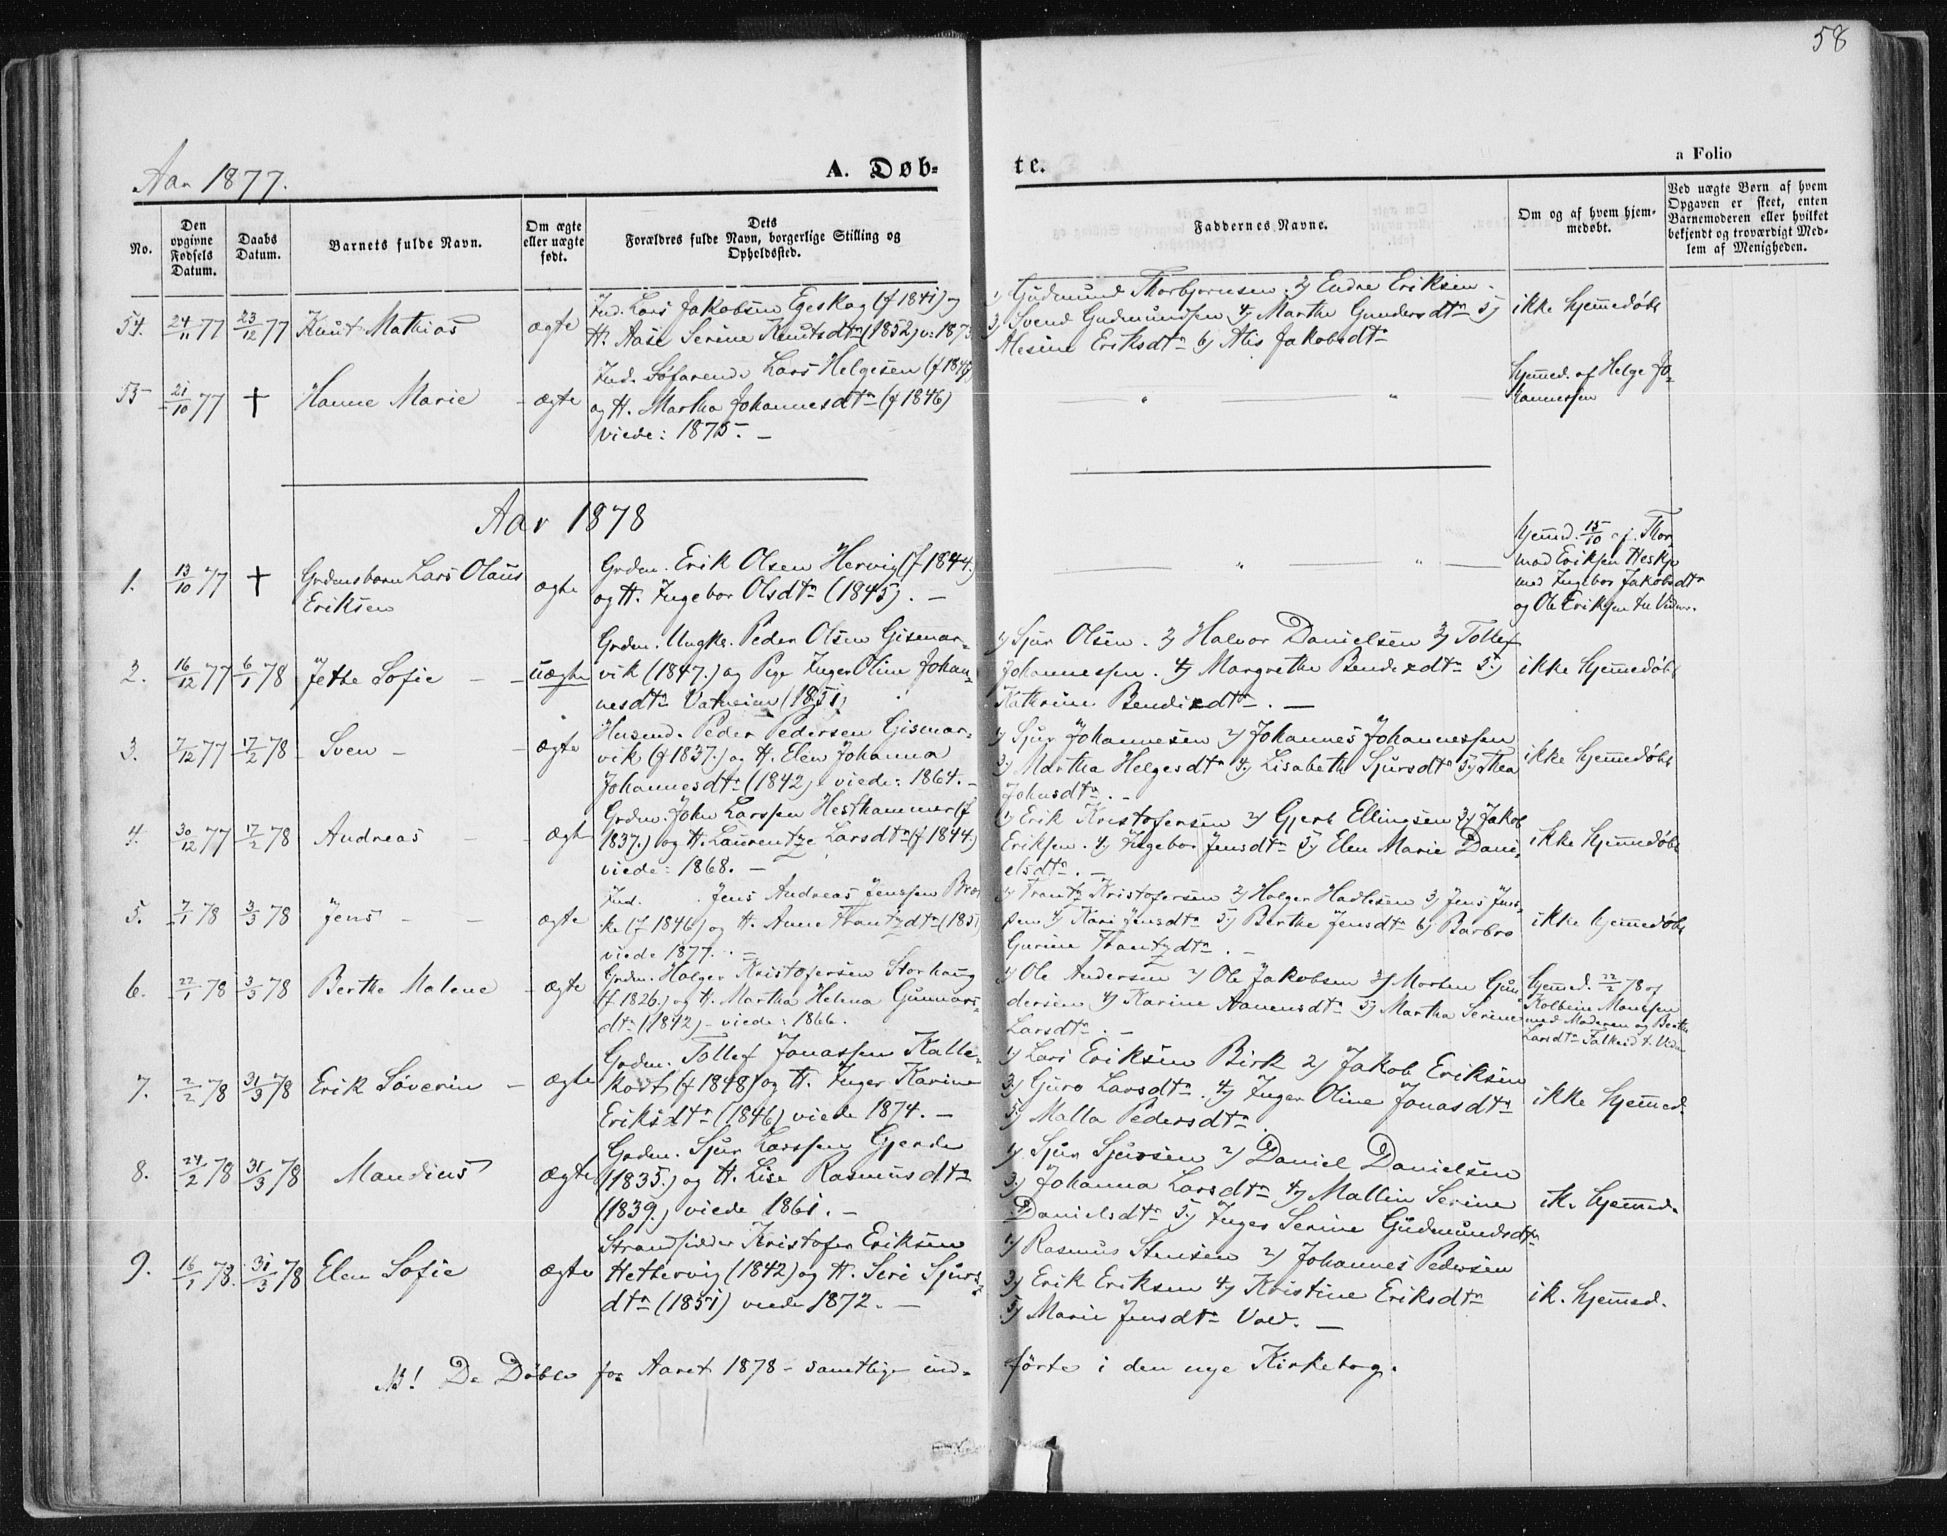 58
Aar 1877.
A. Døb-
te.
a Folio
No.
Den opgivne Fødsels Datum.
Daabs Datum.
Barnets fulde Navn.
Om ægte eller uægte født.
Dets Forældres fulde Navn, borgerlige Stilling og Opholdssted.
Faddernes Navne.
Om og af hvem hjemmedøbt.
Ved uægte Børn af hvem Opgaven er skeet, enten Barnemoderen eller hvilket bekjendt og troværdigt Medlem af Menigheden.
54. 24/11 77 23/12 77 Knut Mathias ægte
Ind. Lars Jakobsen Egeskog (f 1841) og
H. Aase Serine Knutsdtr (1852) v: 1873
1) Gudmund Thorbjørnsen. 2) Endre Eriksen.
3) Svend Gudmundsen 4) Marthe Gundersdtr 5)
Alesine Eriksdtr 6) Alis Jakobsdtr
ikke hjemmedøbt
55 21/10 77 † Hanne Marie - ægte
Ind. Søfarende Lars Helgesen (f 1849)
og H. Martha Johannesdtr (f 1846)
viede: 1875. -
— " — " —
hjemmed. af Helge Jo-
hannessen
Aar 1878
1. 13/10 77 † Grdmsbarn Lars Olaus
Eriksen
ægte
Grdm. Erik Olsen Hervig (f 1844.
og H. Ingebor Olsdtr (1845). -
— " — " —
hjemd. 15/10 af j. Thor-
mod Eriksen Heskje
med Ingebor Jakobsdtr
og Ole Eriksen til Vidner.
2. 16/12 77 6/1 78 Jethe Sofie - - uægte
Grdm. Ungk. Peder Olsen Gismar-
vik (1847.) og Pige Inger Oline Johan-
nesdtr Vatneim (1851)
1) Sjur Olsen. 2) Halvor Danielsen 3) Tollef
Johannessen. 4) Margrethe Bendixdtr 5)
Kathrine Bendixdtr. -
ikke hjemmedøbt
3. 7/12 77 17/2 78 Sven - - ægte
Husmd. Peder Pedersen Gismar-
vik (f 1837.) og H. Elen Johanna
Johannesdtr (1842) viede: 1864. -
1) Sjur Johannesen 2) Johannes Johannessen
3) Martha Helgesdtr 4) Lisabeth Sjursdtr 5) Thea
Johnsdtr. -
ikke hjemmedøbt
4. 30/12 77 17/2 78 Andreas - - ægte
Grdm. John Larssen Hesthammer (f
1837.) og H. Laurentze Larsdtr (f 1844)
viede: 1868. -
1) Erik Kristofersen 2) Gjert Ellingsen 3) Jakob
Eriksen. 4) Ingebor Jensdtr 5) Elen Marie Dani-
elsdtr. -
ikke hjemmedøbt
5. 7/1 78 3/3 78 Jens - - ægte
Ind. Jens Andreas Jenssen Bræk-
ke (f 1846) og H. Anne Frantzdtr (1851
viede 1877. -
1) Frantz Kristofersen 2) Holger Hadlesen 3) Jens Jens-
sen 4) Kari Jensdtr 5) Berthe Jensdtr 6) Barbro
Gurine Frantzdtr. -
ikke hjemmedøbt
6. 22/1 78 3/3 78 Berthe Malene - ægte
Grdm. Holger Kristofersen Storhaug
(f 1826.) og H. Martha Helena Gunnars-
dtr (1842) - viede: 1866.
1) Ole Andersen 2) Ole Jakobsen 3) Morten Gun-
dersen 4) Karine Aanensdtr 5) Martha Serine
Larsdtr. -
hjemmed. 22/2 78 af
Kolbeine Monssen
med Moderen og Berthe
Larsdtr Falkeid t. Vidn
7. 2/2 78 31/3 78 Erik Søverin - ægte
Grdm. Tollef Jonassen Kalle-
kodt (f 1848) og H. Inger Karine
Eriksdtr (1846) viede 1874. -
1) Lars Eriksen Birk 2) Jakob Eriksen
3) Guro Larsdtr. 4) Inger Oline Jonasdtr
5) Malla Pedersdtr.
ikke hjemmed.
8. 24/2 78 31/3 78 Mandius ægte
Grdm. Sjur Larssen Gjerde
(1835.) og H. Lise Rasmusdtr
(1839.) viede 1861. -
1) Sjur Sjursen 2) Daniel Danielsen
3) Johanna Larsdtr 4) Mallin Serine
Danielsdtr 5) Inger Serine Gudmundsdtr
ik. hjemmed.
9. 16/1 78. 31/3 78 Elen Sofie ægte
Strandsidder Kristofer Eriksen
Hettervig (1842) og H. Seri Sjurs-
dtr (1851) viede 1872. -
1) Rasmus Stensen 2) Johannes Pedersen
3) Erik Eriksen 4) Kristine Eriksdtr
5) Marie Jensdtr Vold. -
ik. hjemmed.
NB! De Døbte for Aaret 1878 - samtlige ind-
førte i den nye Kirkebog.